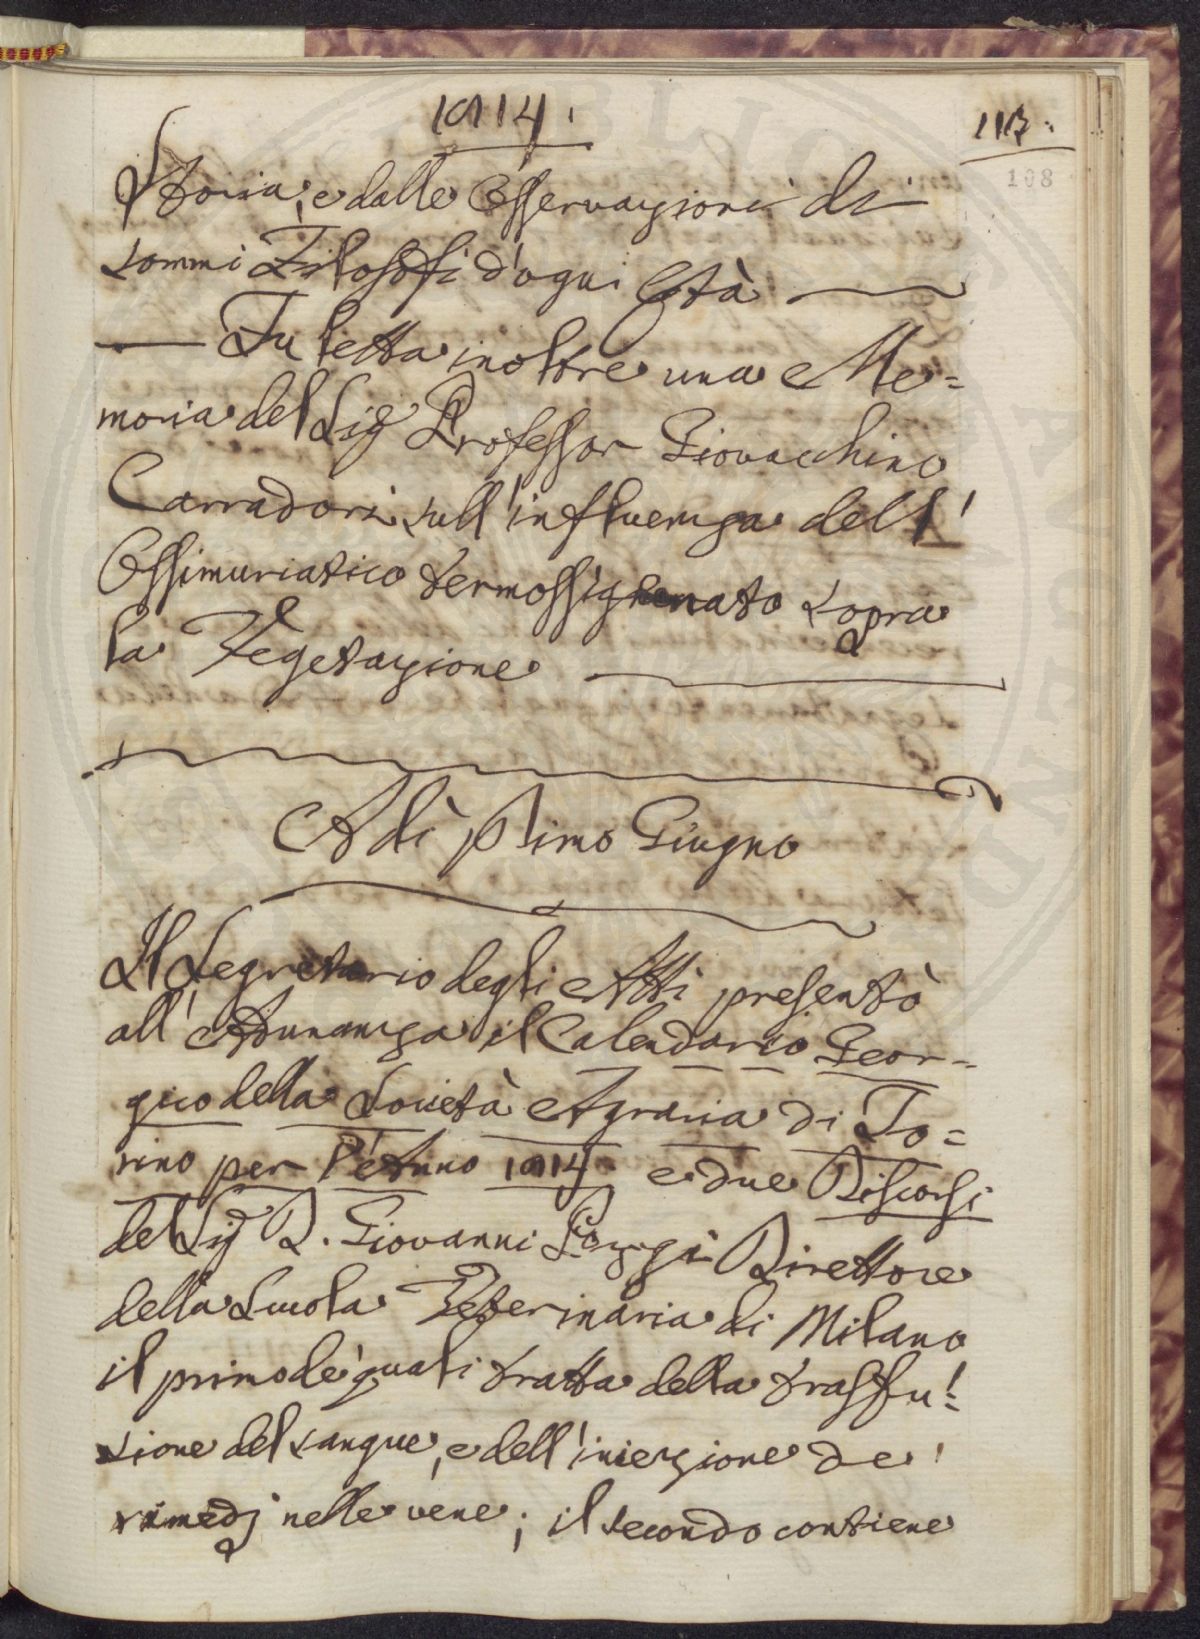 1814.
113.
108
Storia, e dalle Osservazioni di
sommi Filosofi d'ogni Età
Fu letta inoltre una Me=
moria del Sig Professor Giovacchino
Carradori sull'influenza dell'
Ossimuriatico termossigenato sopra
la Vegetazione
Adì Primo Giugno
Il Segretario degli Atti presentò
all'Adunanza il Calendario Geor=
gico della Società Agraria di To=
rino per l'Anno 1814 e due Discorsi
del Sig D. Giovanni Pozzi Direttore
della Scuola Veterinaria di Milano
il primo de' quali tratta della trasfu=
sione del sangue, e dell'iniezione de'
rimedj nelle vene; il secondo contiene